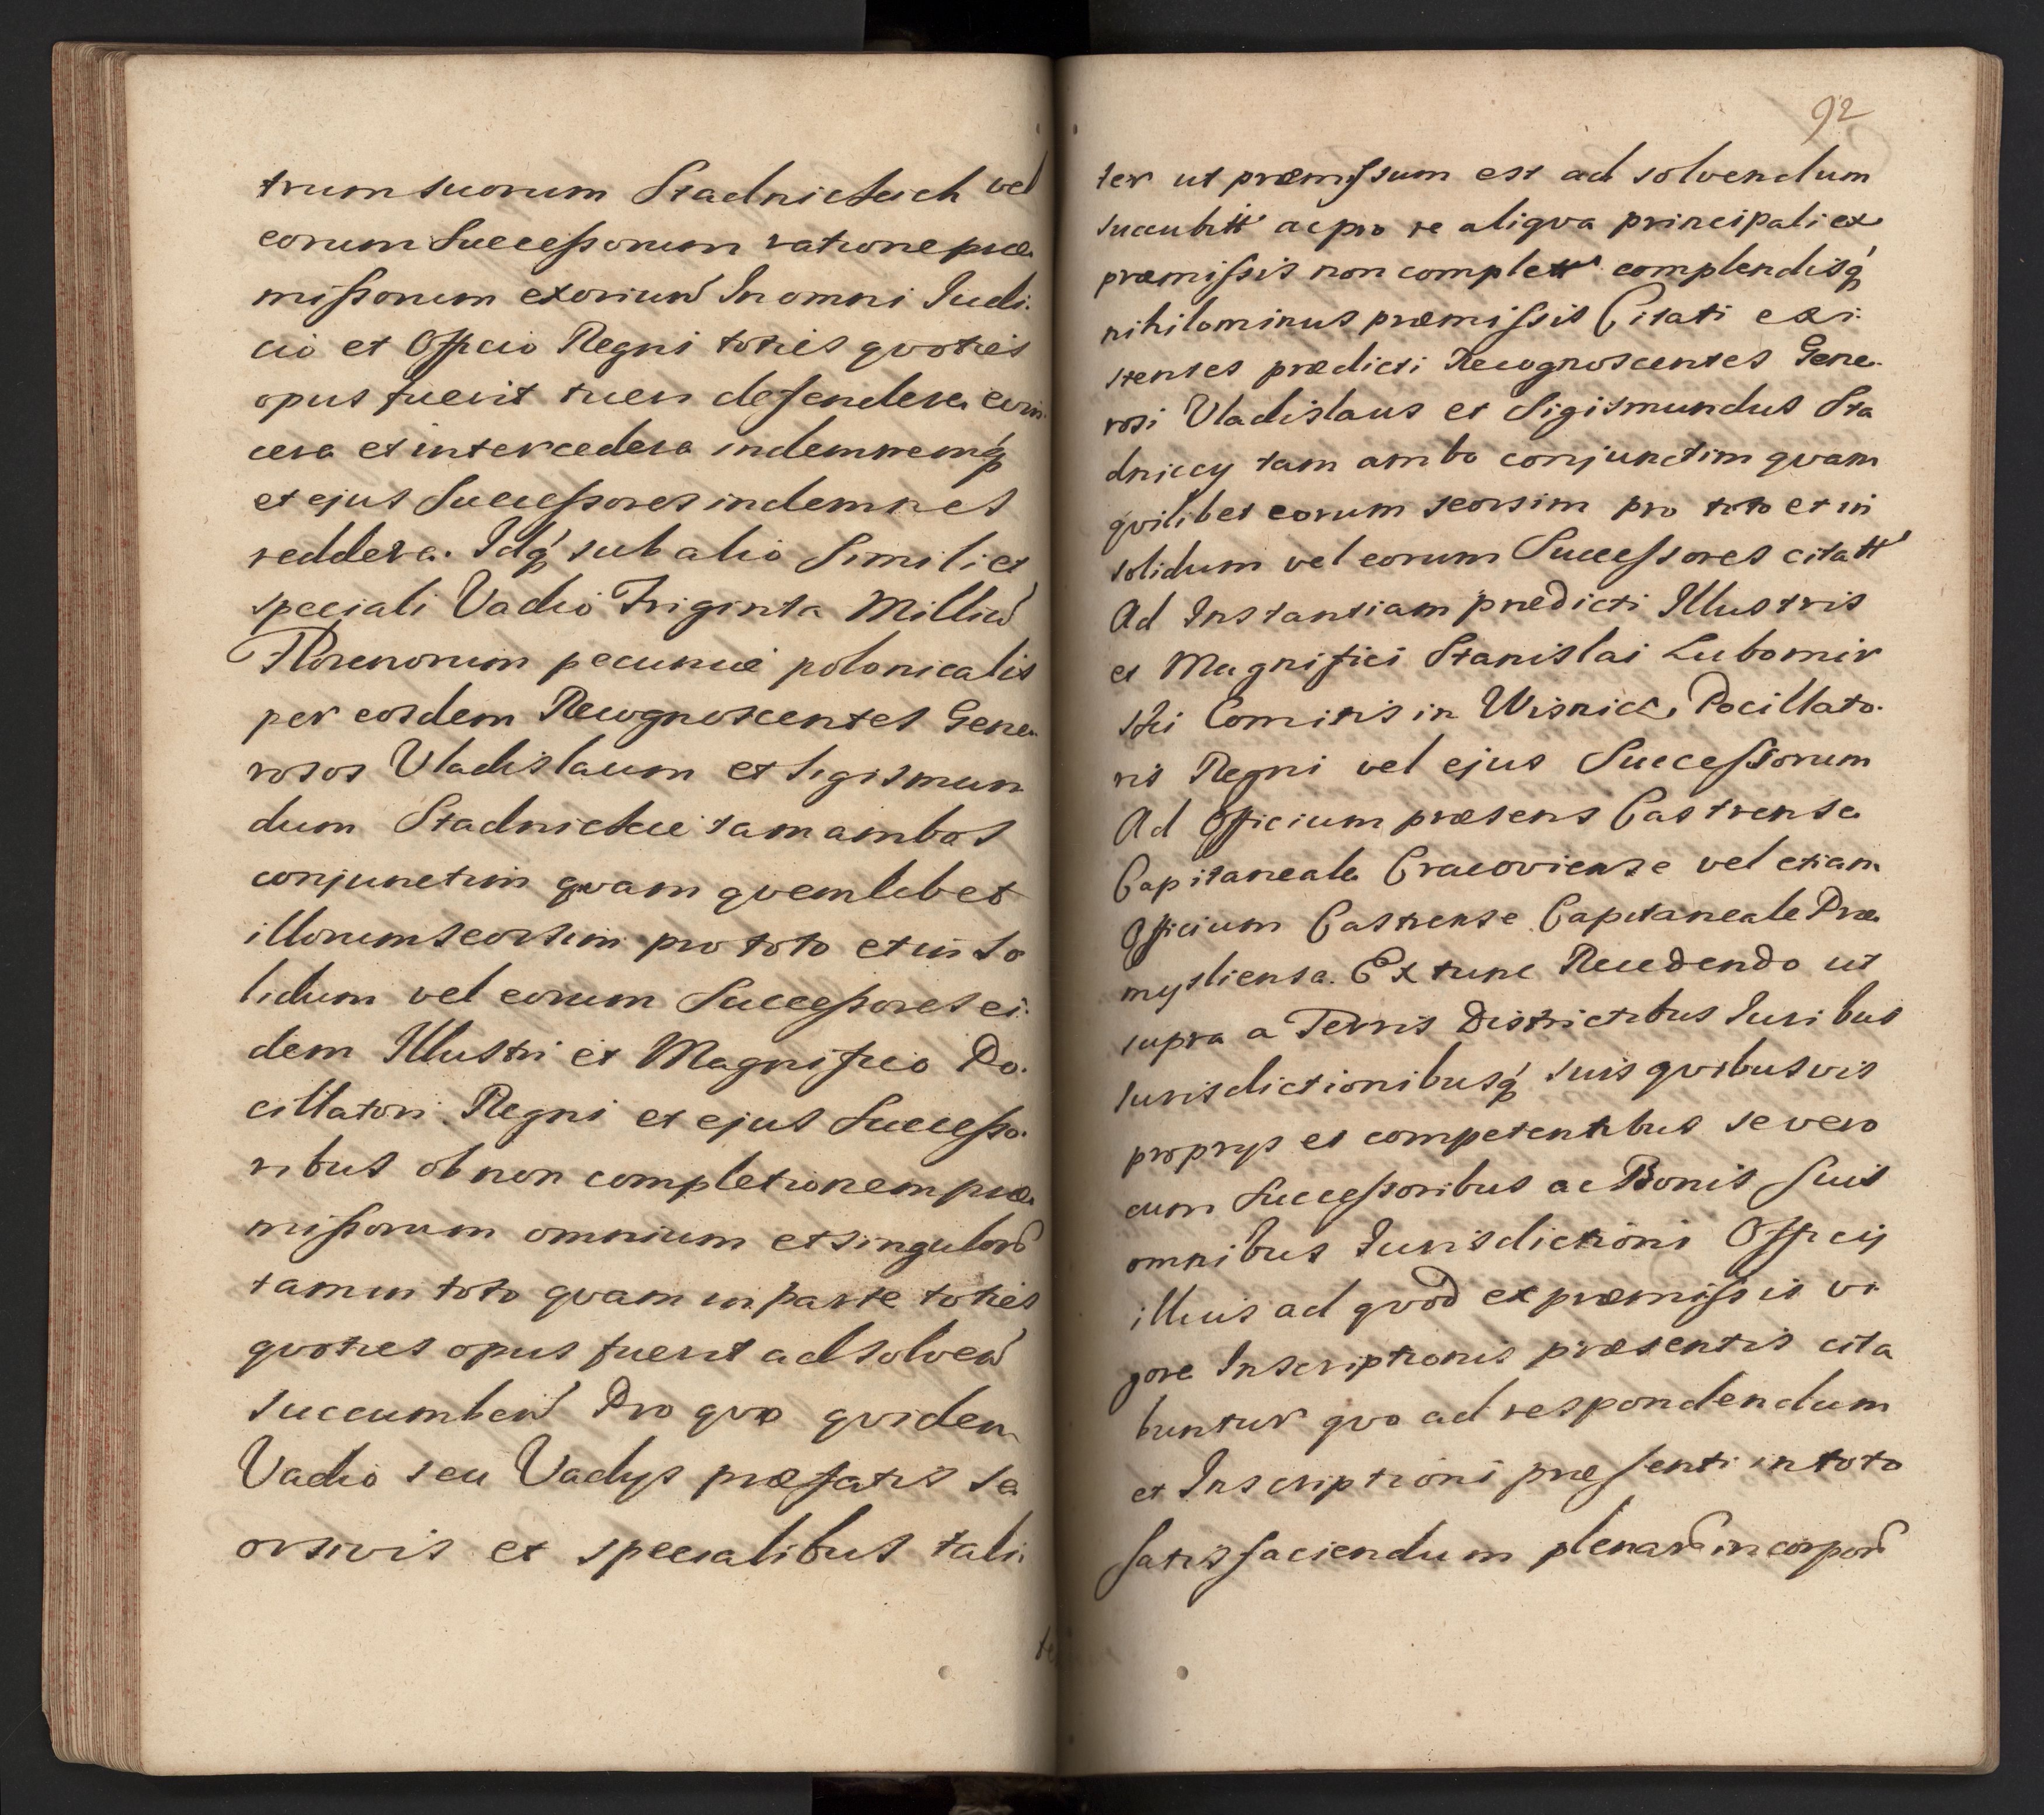 trum suorum Stadnickich vel
eorum Successorum ratione præ
missorum exoriun In omni Iudi
cio et Officio Regni toties qvoties
opus fuerit tueri defendere evin
cere et intercedere indemnemq́
et ejus Successores indemnes
reddere. Idq́ sub alio Simili et
speciali Vadio Triginta Milliu
Florenorum pecuniæ polonicalis
per eosdem Recognoscentes Gene
rosos Vladislaum et Sigismun
dum Stadnickie tam ambos
conjunctim qvam qvemlibet
illorum seorsim pro toto et in so
lidum vel eorum Successores ei
dem Illustri et Magnifico Po.
cillatori Regni et ejus Successo.
ribus ob non completionem præ
missorum omnium et singulor
tam in toto qvam in parte toties
qvoties opus fuerit ad solven
succumben Pro qvo qvidem
Vadio seu Vadys præfatis se
orsivis et specialibus tali
te
92
ter ut præmissum est ad solvendum
succubitt ac pro re aliqva principali ex
præmissis non complett complendisq́
nihilominus præmissis Citati exi
stentes prædicti Recognoscentes Gene
rosi Vladislaus et Sigismundus Sta
dniccy tam ambo conjunctim qvam
qvilibet eorum seorsim pro toto et in
solidum vel eorum Successores citatt
Ad Instantiam prædicti Illustris
et Magnifici Stanislai Lubomir
ski Comitis in Wisnicz Pocillato
ris Regni vel ejus Successorum
Ad Officium præsens Castrense
Capitaneale Cracoviense vel etiam
Officium Castrense Capitaneale Præ
mysliense. Ex tunc Recedendo ut
supra a Terris Districtibus Iuribus
Iurisdictionibusq́ suis qvibusvis
propryis et competentibus se vero
cum Successoribus ac Bonis suis
omnibus Iurisdictioni Officij
illius ad qvod ex præmissis vi
gore Inscriptionis præsentis cita
buntur qvo ad respondendum
et Inscriptioni præsenti in toto
satisfaciendum plenarie incorpor